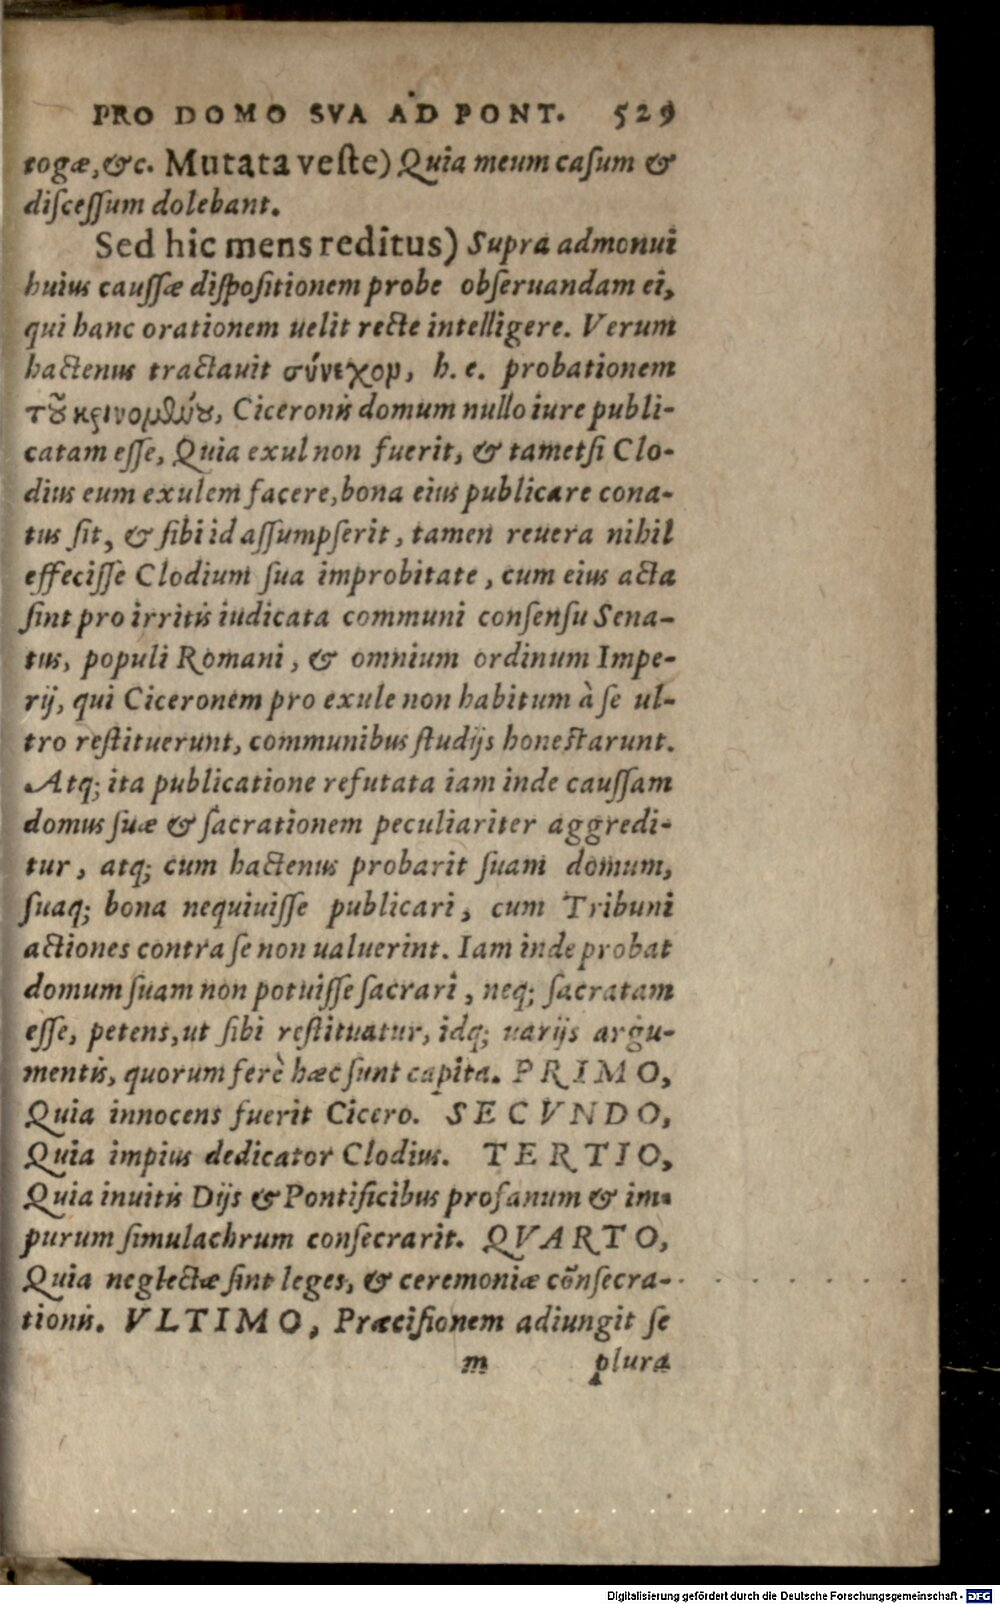 PRO DOMO SVA AD PONT. 529
togæ, &c. Mutata veſte) Quia meum caſum &
diſceſſum dolebant.
Sed hic mens reditus) Supra admonui
huius cauſſæ diſpoſitionem probe obſeruandam ei,
qui hanc orationem uelit recte intelligere. Verum
hactenus tractauit σύνεχον, h. e. probationem
τοῦ κρινομένου, Ciceronis domum nullo iure publi-
catam eſſe, Quia exul non fuerit, & tametſi Clo-
dius eum exulem facere, bona eius publicare cona-
tus ſit, & ſibi id aſſumpſerit, tamen reuera nihil
effeciſſe Clodium ſua improbitate, cum eius acta
ſint pro irritis iudicata communi conſenſu Sena-
tus, populi Romani, & omnium ordinum Impe-
rij, qui Ciceronem pro exule non habitum à ſe ul-
tro reſtituerunt, communibus ſtudijs honeſtarunt.
Atq; ita publicatione refutata iam inde cauſſam
domus ſuæ & ſacrationem peculiariter aggredi-
tur, atq; cum hactenus probarit ſuam domum,
ſuaq; bona nequiuiſſe publicari, cum Tribuni
actiones contra ſe non ualuerint. Iam inde probat
domum ſuam non potuiſſe ſacrari, neq; ſacratam
eſſe, petens, ut ſibi reſtituatur, idq; uarijs argu-
mentis, quorum ferè hæc ſunt capita. PRIMO,
Quia innocens fuerit Cicero. SECVNDO,
Quia impius dedicator Clodius. TERTIO,
Quia inuitis Dijs & Pontificibus profanum & im-
purum ſimulachrum conſecrarit. QVARTO,
Quia neglectæ ſint leges, & ceremoniæ cõnſecra-
tionis. VLTIMO, Præciſionem adiungit ſe
m plura
Digitalisierung gefördert durch die Deutsche Forschungsgemeinschaft - DFG